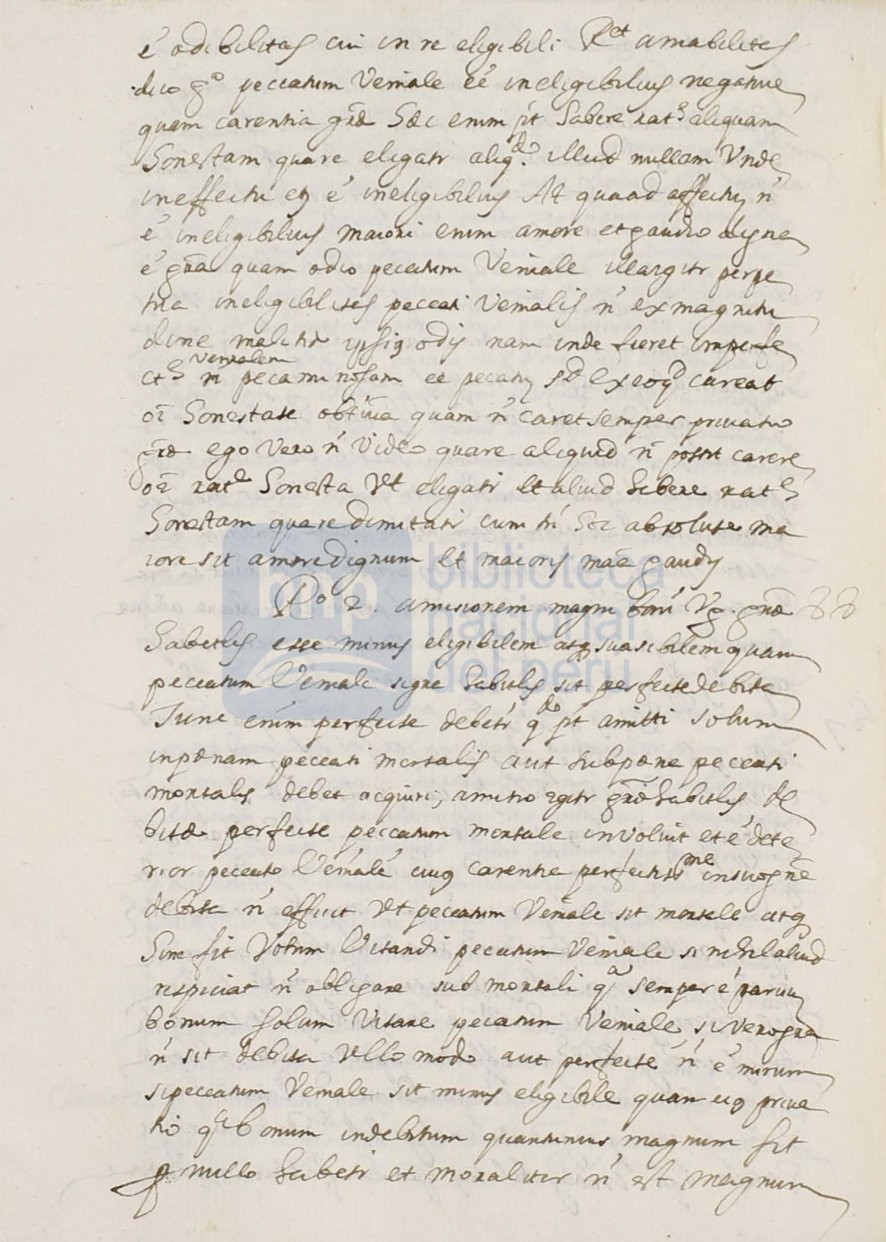 é odibilitas cui in re eligibili Rꝫt amabilitas
dico gº peccatum Veniale eē ineligibilius negatiue
quam carentia grāe Hæc enim pt̄ habere ratē aliquam
honestam quare eligatr aliqdo illud nullam Vnde
in effectu eq é ineligibilius At quoad affectū n̄
é ineligibilius maiori enim amore et gaudio digna
é grā quam odio peccatum Veniale illa igitr perpe
tua ineligibilitas peccati Venialis n̄ ex magnitu
dine malitiæ ipsiq odij nam inde fieret imperfe
ctē n̄ Venialem pecaminosam eē pecatū sd ex eo qd careat
oī honestate obtiua quam n̄ caret semper priuatio
grāe ego vero n̄ Video quare aliquid n̄ possit carere
oī ratē honesta Vt eligatr et aliud habere ratē
honestam quare dimitatr cum tn̄ hoc absolute ma
iore sit amore dignum et maioris māe gaudij
Rº 2. amisionem magni boni Vg. grāe
habitlis esse minus eligibilem atq suasibilem quam
peccatum Veniale signe habitlis sit perfecte debita
Tunc enim perfecte debetr qdo pt̄ amitti solum
in pœnam peccati mortalis aut sub pœna peccati
mortalis debet acquiri, amitio igitr grāe habitlis de
bitæ perfecte peccatum mortale inuoluit et é dete
rior peccato Veniale cuiq carentia perfectissme in suo gne
debita n̄ efficit Vt peccatum Veniale sit mortale atq
hinc fit Votum Vitandi peccatum Veniale si nihil aliud
respiciat n̄ obligare sub mortali qa semper é paruū
bonum solum Vitare pecatum Veniale si vero grā
n̄ sit debita Vllo modo aut perfecte n̄ é mirum
si peccatum Veniale sit minus eligibile quam eiq priua
tio qa bonum indebitum quantumuis magnum sit
p nullo habetr et moraliter n̄ est magnum
bnp biblioteca
nacional
del perú